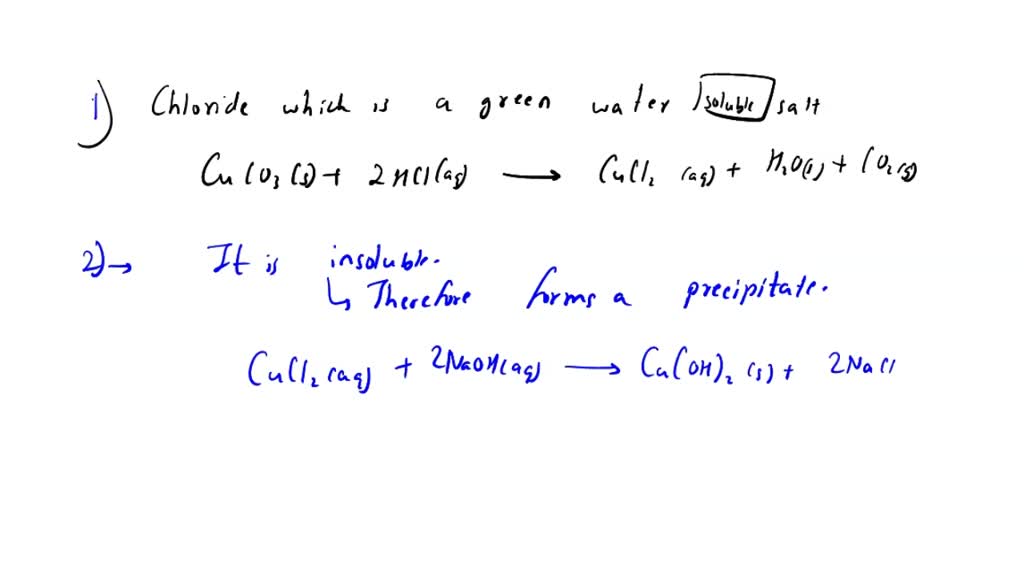 1) Chloride which is a green water soluble salt
CuCO3(s) + 2HCl(aq) → CuCl2 (aq) + H2O(l) + CO2(g)
2)→ It is insoluble.
↳ Therefore forms a precipitate.
CuCl2(aq) + 2NaOH(aq) → Cu(OH)2 (s) + 2NaCl